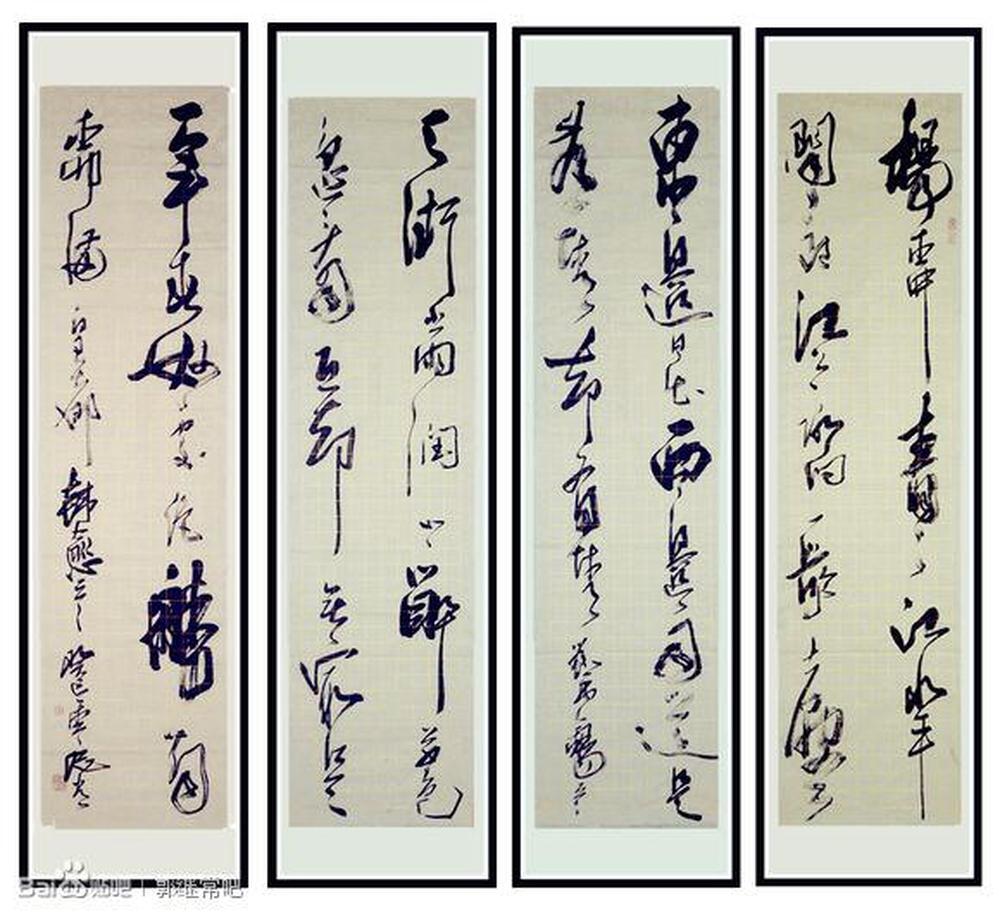 楊柳青青江水平
聞郎江上歌聲
東邊日出西邊雨道是
無晴却有晴 劉禹錫
天街小雨潤如酥草色
遙看近却無最是
一年春好處絕勝煙
柳滿皇都 韓愈 癸巳
Bai du 贴吧 | 郭继常吧